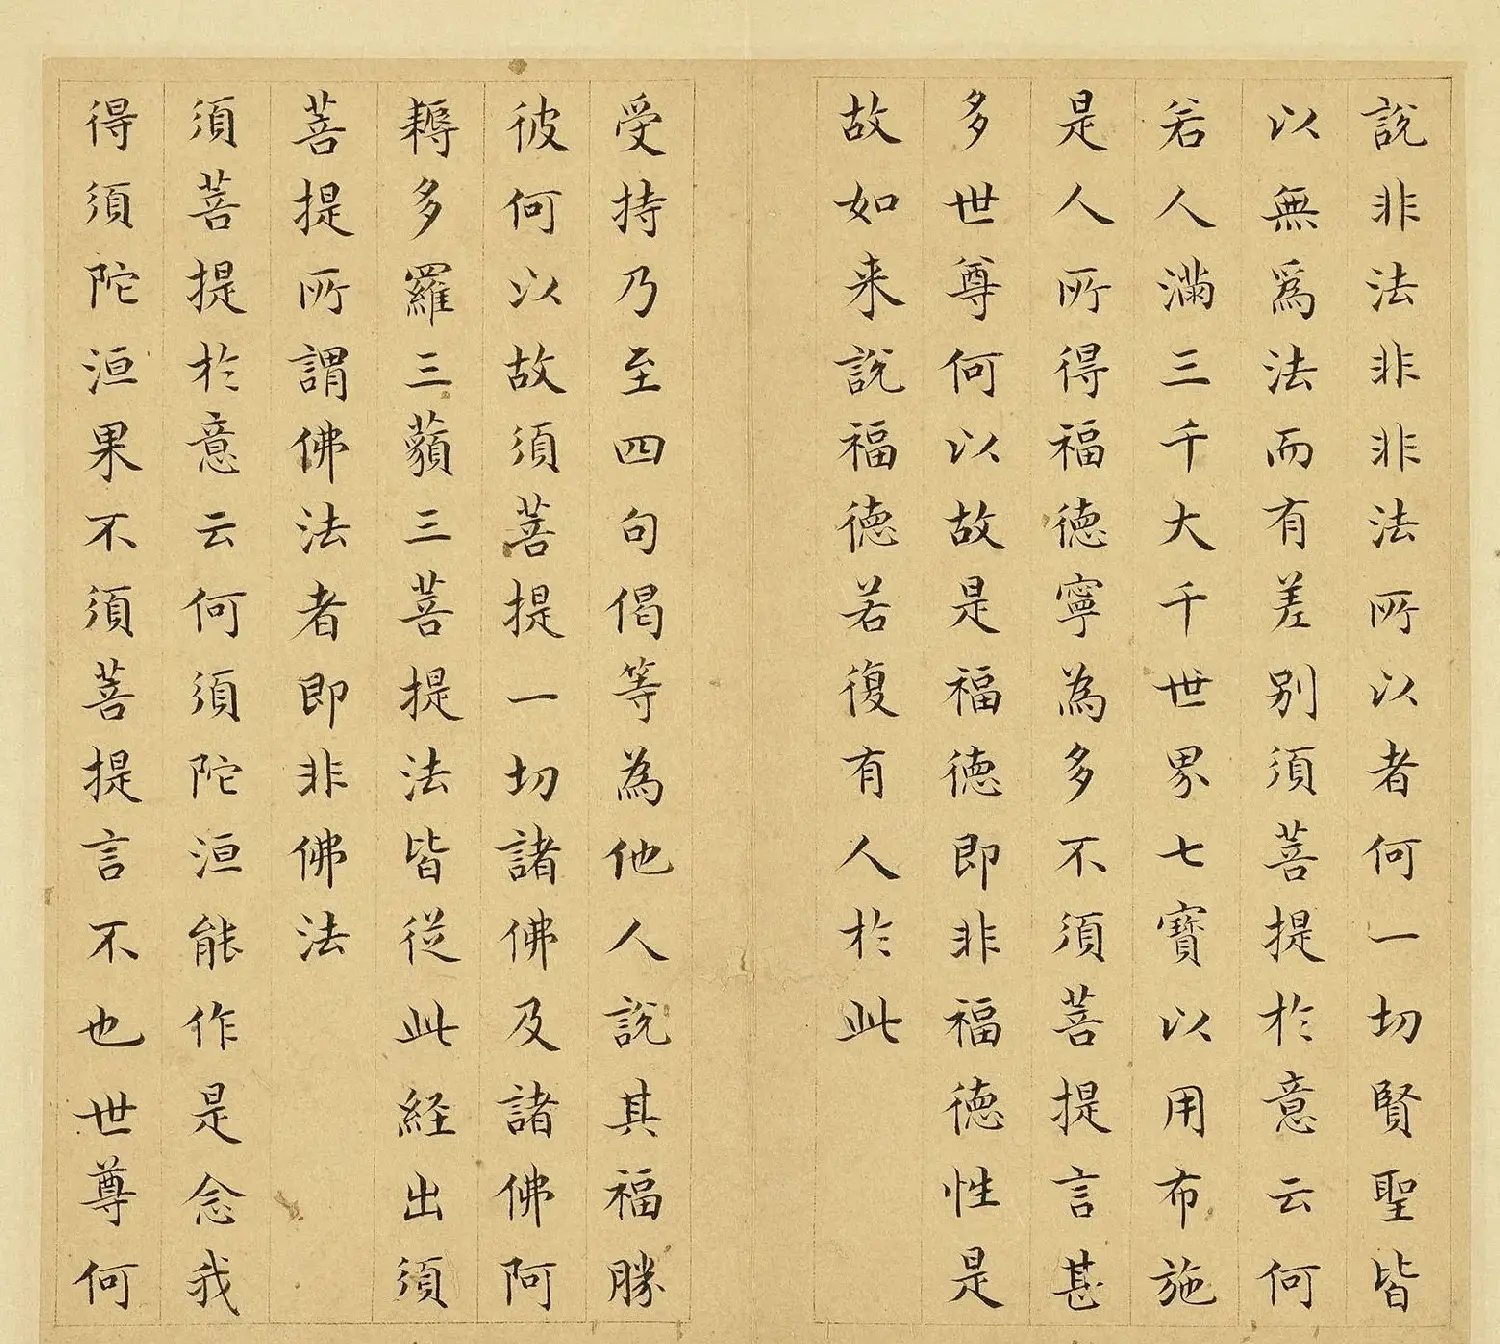 說非法非非法所以者何一切賢聖皆
以無爲法而有差别須菩提於意云何
若人滿三千大千世界七寶以用布施
是人所得福德寧為多不須菩提言甚
多世尊何以故是福德即非福德性是
故如来說福德若復有人於此
受持乃至四句偈等為他人說其福勝
彼何以故須菩提一切諸佛及諸佛阿
耨多羅三藐三菩提法皆從此経出須
菩提所謂佛法者即非佛法
須菩提於意云何須陀洹能作是念我
得須陀洹果不須菩提言不也世尊何